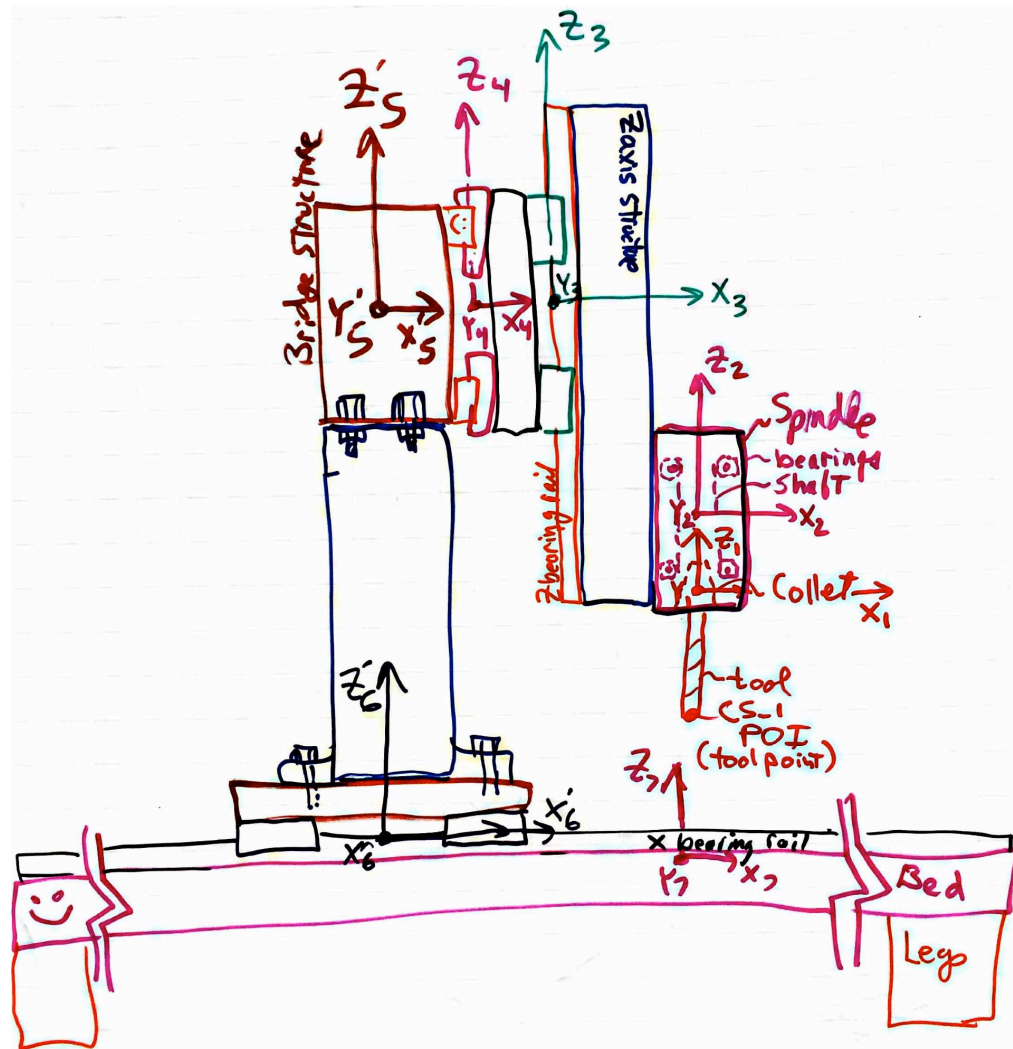 Z3
Z4
Z'5
Bridge Structure
Zaxis structure
Y3
X3
Y'5
X'5
Y4
X4
Z2
Spindle
bearings
shaft
Y2
X2
Z1
Z bearing rail
Y1
Collet
X1
tool
CS_1
POI
(tool point)
Z'6
Z7
X'6
X bearing rail
Y7
X7
Bed
Legs